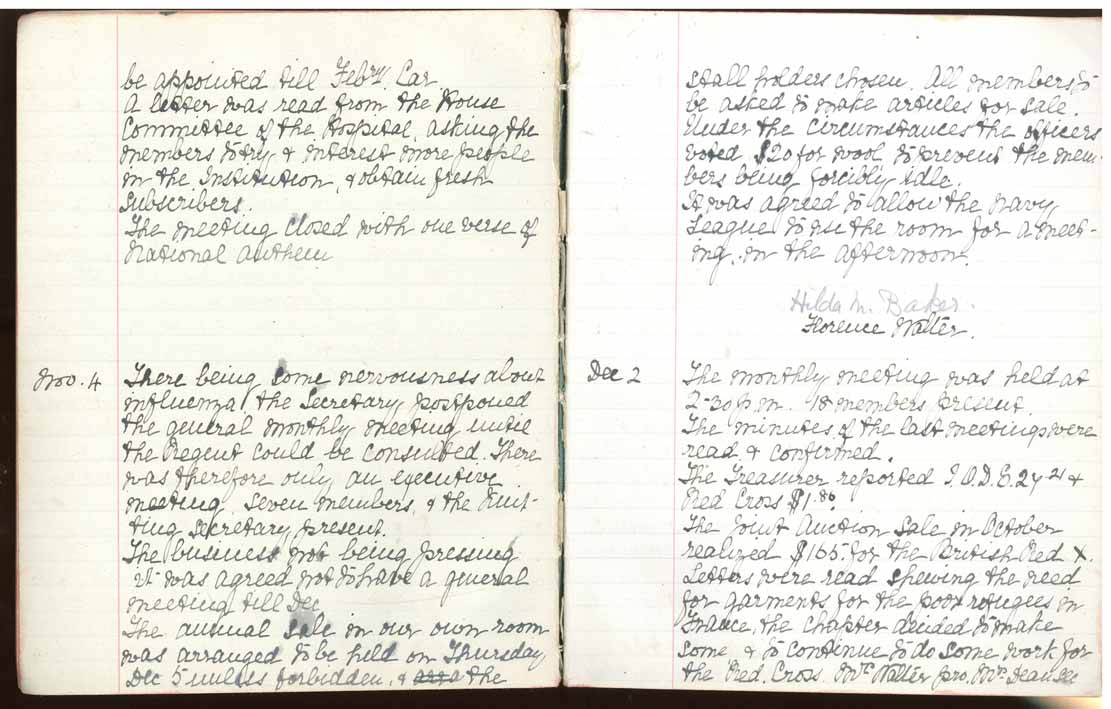 be appointed till Febry. Car
A letter was read from the House
Committee of the Hospital, asking the
members to try & interest more people
in the Institution, & obtain fresh
Subscribers.
The meeting closed with one verse of
National Anthem
Nov. 4 There being some nervousness about
influenza the Secretary postponed
the general monthly meeting until
the Regent could be consulted. There
was therefore only an executive
meeting. Seven members, & the Knit-
ting Secretary present.
The business not being pressing
it was agreed not to have a general
meeting till Dec
The annual sale in our own room
was arranged to be held on Thursday
Dec 5 unless forbidden, & the
stall holders chosen. All members to
be asked to make articles for sale.
Under the circumstances the officers
voted $20 for wool to prevent the mem-
bers being forcibly idle.
It was agreed to allow the Navy
League to use the room for a meet-
ing, in the afternoon.
Hilda M. Baker.
Florence Walter.
Dec 2 The monthly meeting was held at
2-30 p.m. 18 members present.
The minutes of the last meetings were
read & confirmed.
The Treasurer reported I.O.D.E. 27.21 &
Red Cross $1.80
The Joint Auction Sale in October
realized $165 for the British Red X.
Letters were read shewing the need
for garments for the poor refugees in
France, the chapter decided to make
some & to continue to do some work for
the Red Cross. Mrs Walter pro. Mrs Deacon